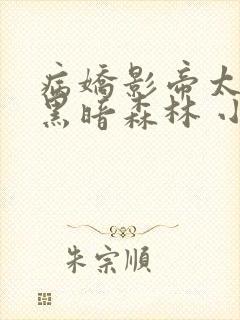 病嬌影帝太
黑暗森林 小
朱宗順